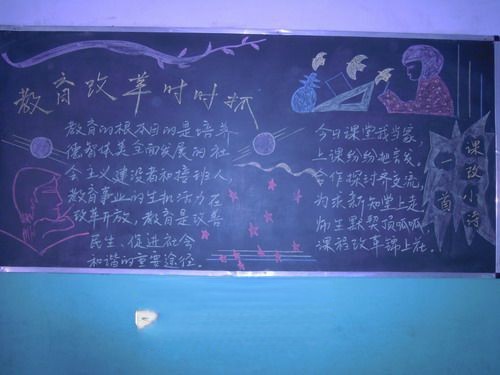 教育改革时时抓
教育的根本目的是培养
德智体美全面发展的社
会主义建设者和接班人,
教育事业的生机活力在
改革开放、教育是改善
民生、促进社会
和谐的重要途径。
课改小诗
一首
今日课堂我当家,
上课纷纷把言发,
合作探讨齐交流,
为求新知堂上走
师生默契顶呱呱,
课程改革锦上花。